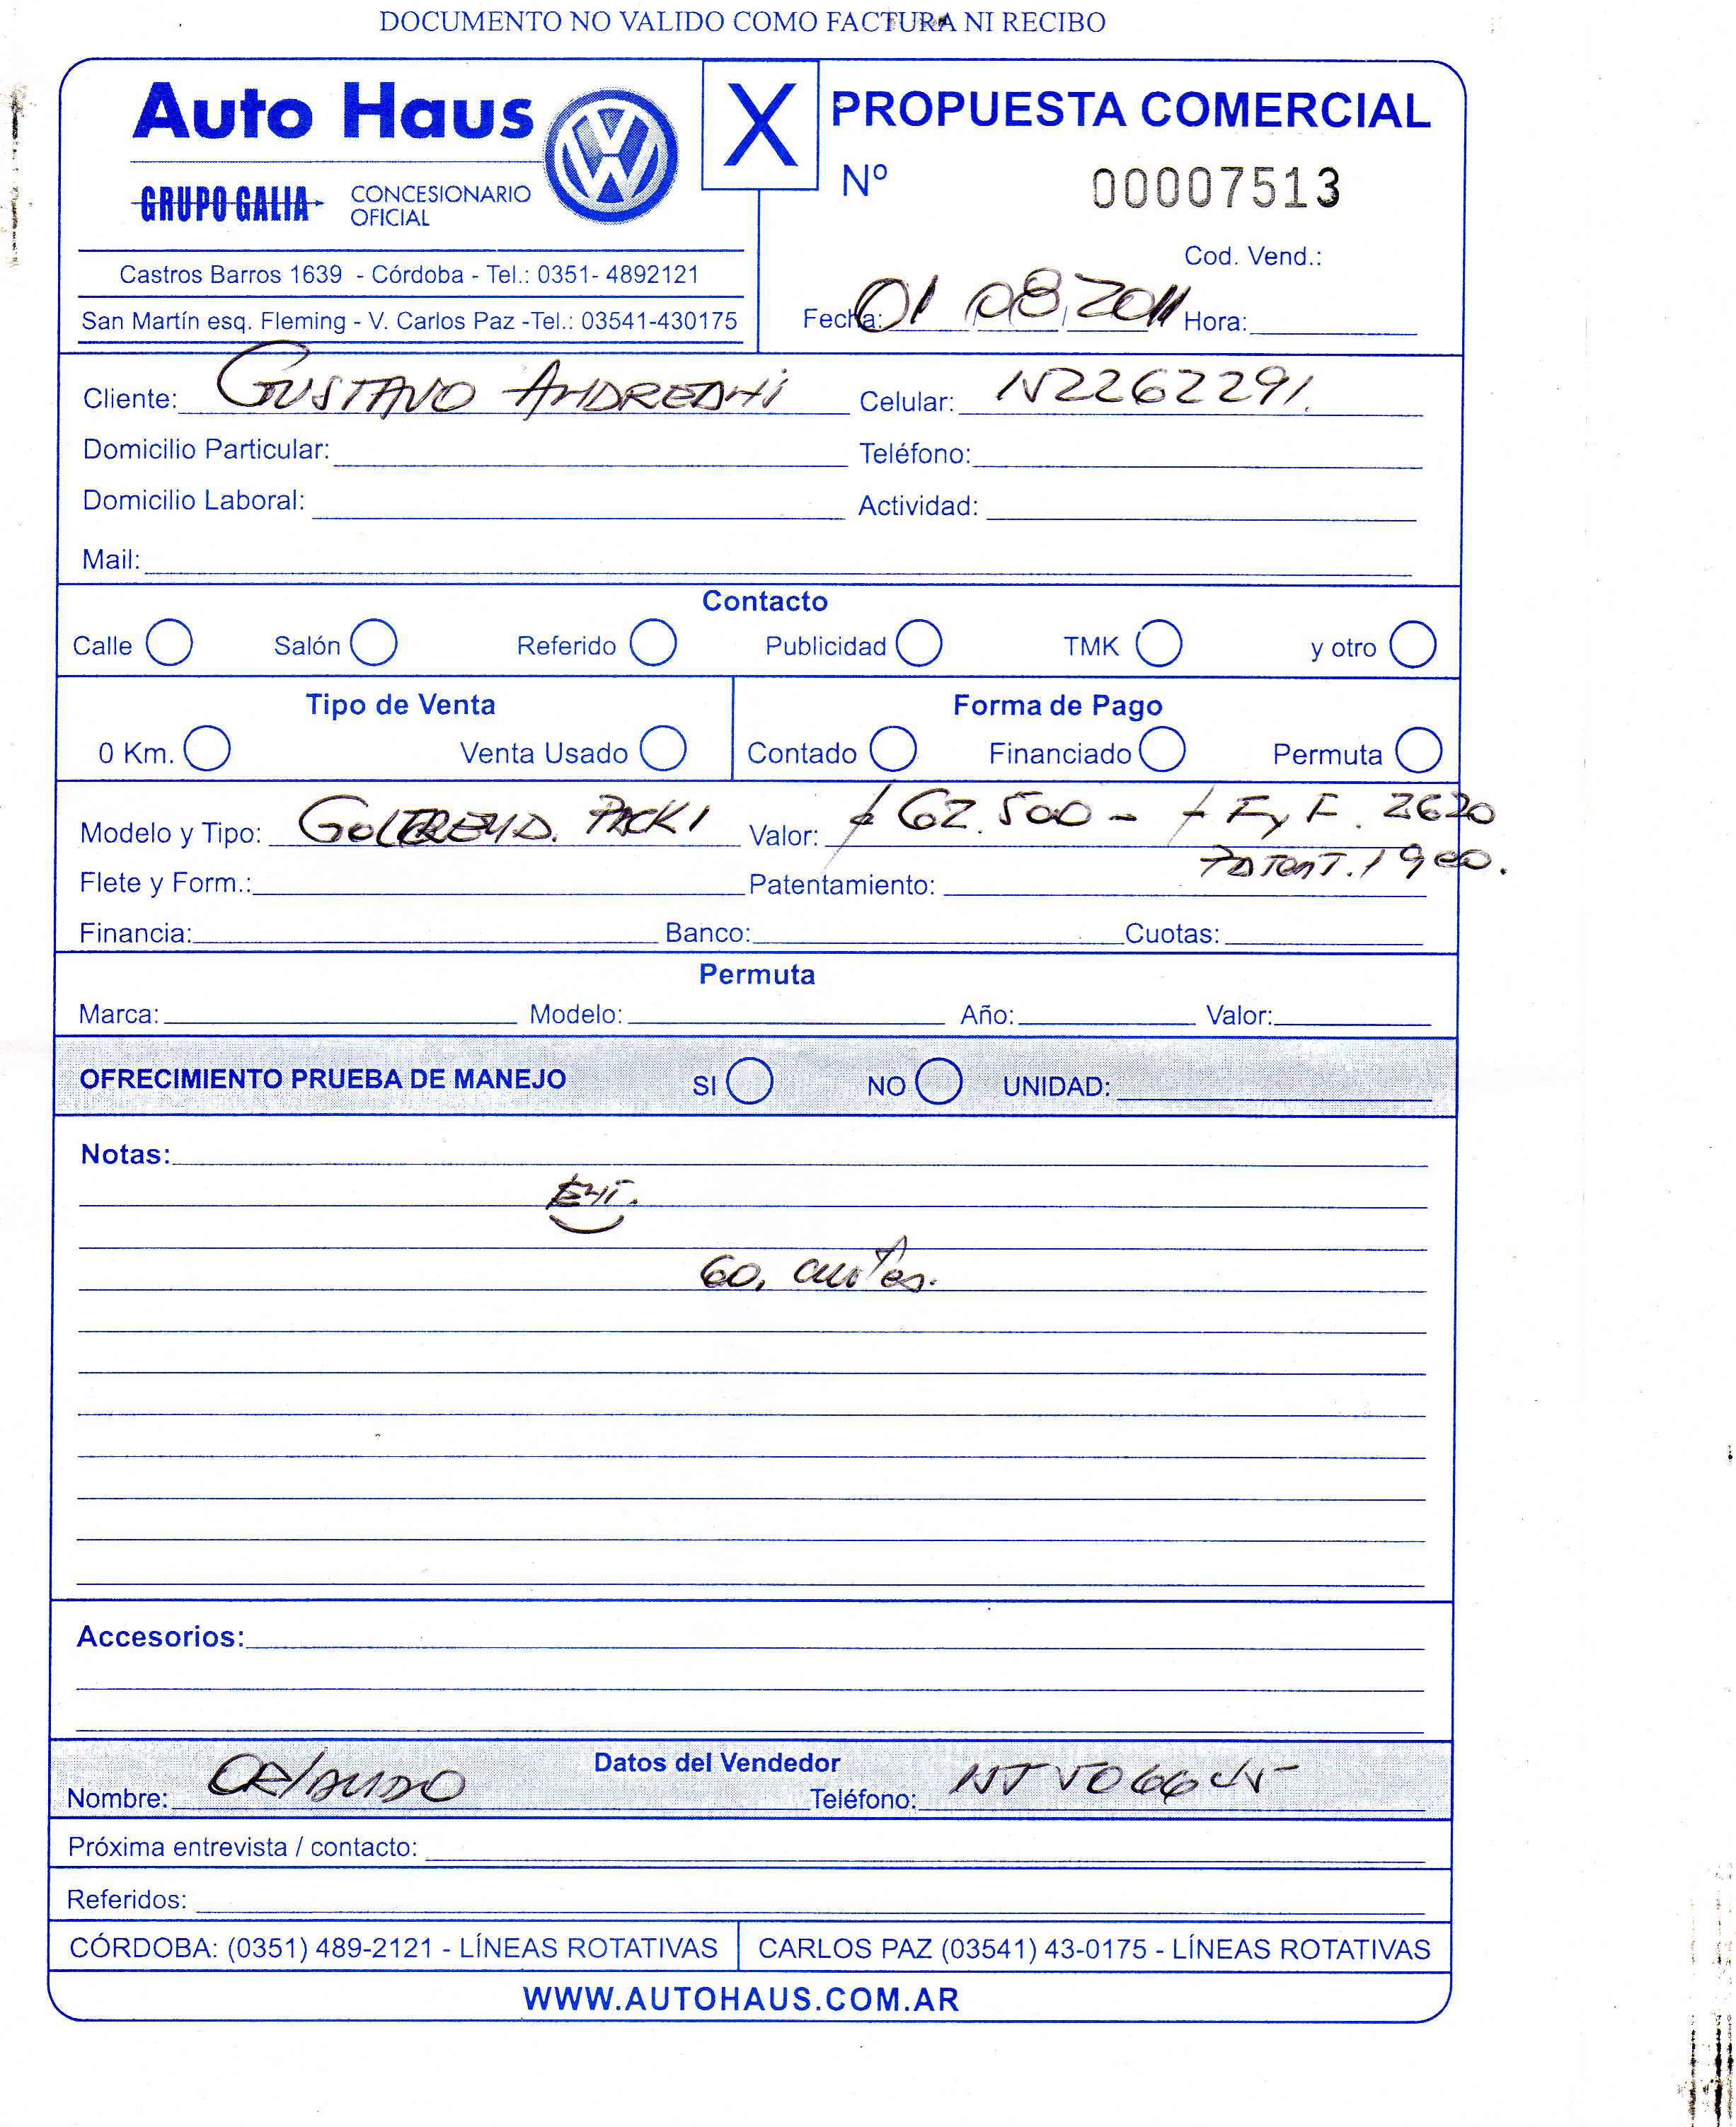 DOCUMENTO NO VALIDO COMO FACTURA NI RECIBO
Auto Haus
GRUPO GALIA CONCESIONARIO OFICIAL
X
PROPUESTA COMERCIAL
Nº 00007513
Cod. Vend.:
Castros Barros 1639 - Córdoba - Tel.: 0351- 4892121
San Martín esq. Fleming - V. Carlos Paz -Tel.: 03541-430175
Fecha: 01/08/2011 Hora:
Cliente: GUSTAVO Celular: 152262291.
Domicilio Particular: Teléfono:
Domicilio Laboral: Actividad:
Mail:
Contacto
Calle Salón Referido Publicidad TMK y otro
Tipo de Venta Forma de Pago
0 Km. Venta Usado Contado Financiado Permuta
Modelo y Tipo: PACK 1 Valor: $ 62.500 - + F y F. 2620
Flete y Form.: Patentamiento: PATENT. 1900.
Financia: Banco: Cuotas:
Permuta
Marca: Modelo: Año: Valor:
OFRECIMIENTO PRUEBA DE MANEJO SI NO UNIDAD:
Notas:
60, cuotas.
Accesorios:
Datos del Vendedor
Nombre: ORLANDO Teléfono:
Próxima entrevista / contacto:
Referidos:
CÓRDOBA: (0351) 489-2121 - LÍNEAS ROTATIVAS CARLOS PAZ (03541) 43-0175 - LÍNEAS ROTATIVAS
WWW.AUTOHAUS.COM.AR